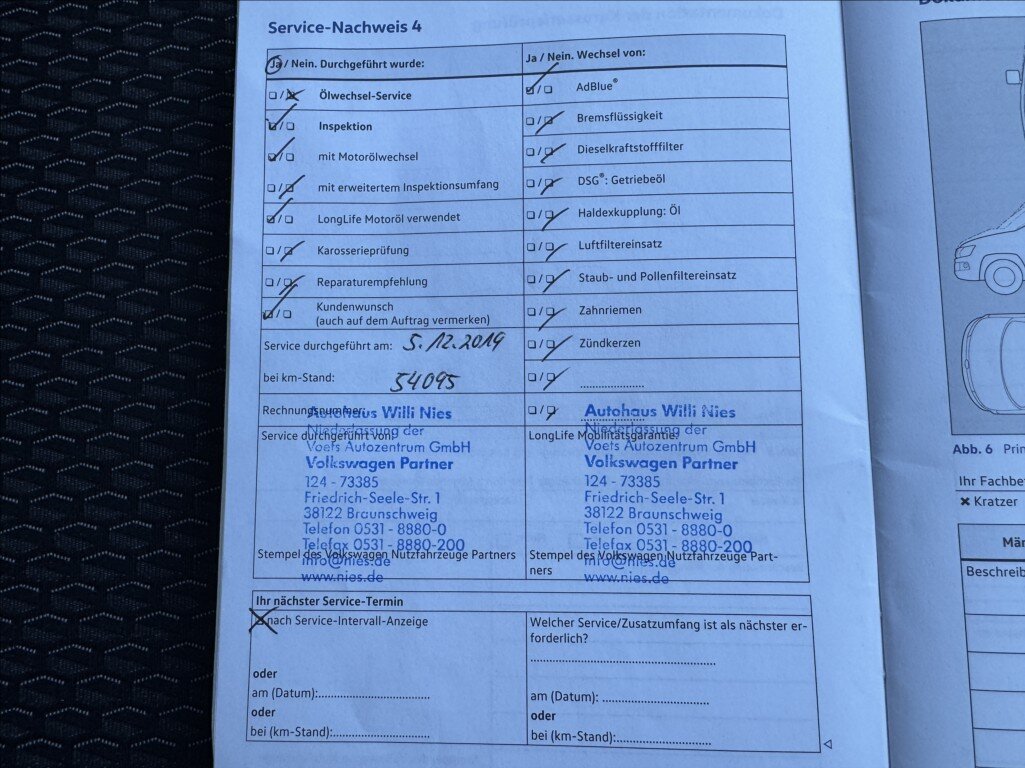 Service-Nachweis 4
Ja / Nein. Durchgeführt wurde:
Ölwechsel-Service
Inspektion
mit Motorölwechsel
mit erweitertem Inspektionsumfang
LongLife Motoröl verwendet
Karosserieprüfung
Reparaturempfehlung
Kundenwunsch
(auch auf dem Auftrag vermerken)
Service durchgeführt am: 5.12.2019
bei km-Stand: 54095
Rechnungsnummer:
Ja / Nein. Wechsel von:
AdBlue®
Bremsflüssigkeit
Dieselkraftstofffilter
DSG®: Getriebeöl
Haldexkupplung: Öl
Luftfiltereinsatz
Staub- und Pollenfiltereinsatz
Zahnriemen
Zündkerzen
Service durchgeführt von:
Autohaus Willi Nies
Niederlassung der
Voets Autozentrum GmbH
Volkswagen Partner
124 - 73385
Friedrich-Seele-Str. 1
38122 Braunschweig
Telefon 0531 - 8880-0
Telefax 0531 - 8880-200
info@nies.de
www.nies.de
Stempel des Volkswagen Nutzfahrzeuge Partners
LongLife Mobilitätsgarantie:
Autohaus Willi Nies
Niederlassung der
Voets Autozentrum GmbH
Volkswagen Partner
124 - 73385
Friedrich-Seele-Str. 1
38122 Braunschweig
Telefon 0531 - 8880-0
Telefax 0531 - 8880-200
info@nies.de
www.nies.de
Stempel des Volkswagen Nutzfahrzeuge Part-
ners
Ihr nächster Service-Termin
nach Service-Intervall-Anzeige
oder
am (Datum):
oder
bei (km-Stand):
Welcher Service/Zusatzumfang ist als nächster er-
forderlich?
am (Datum):
oder
bei (km-Stand):
Abb. 6 Prin
Ihr Fachbe
✖ Kratzer
Män
Beschreib